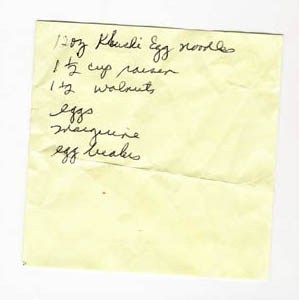 12oz Kluski Egg noodles
1 ½ cup raisin
1 ½ walnuts
eggs
margarine
egg beaters